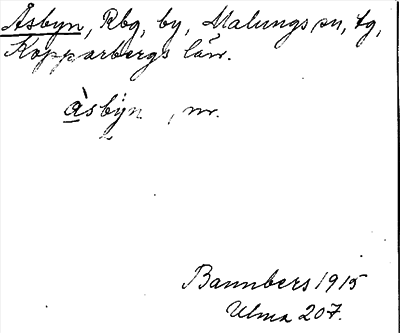 Åsbyn, Rbg, by, Malungs sn, tg,
Kopparbergs län.
åsbyn, nr.
Bannbers 1915
Ulma 207.